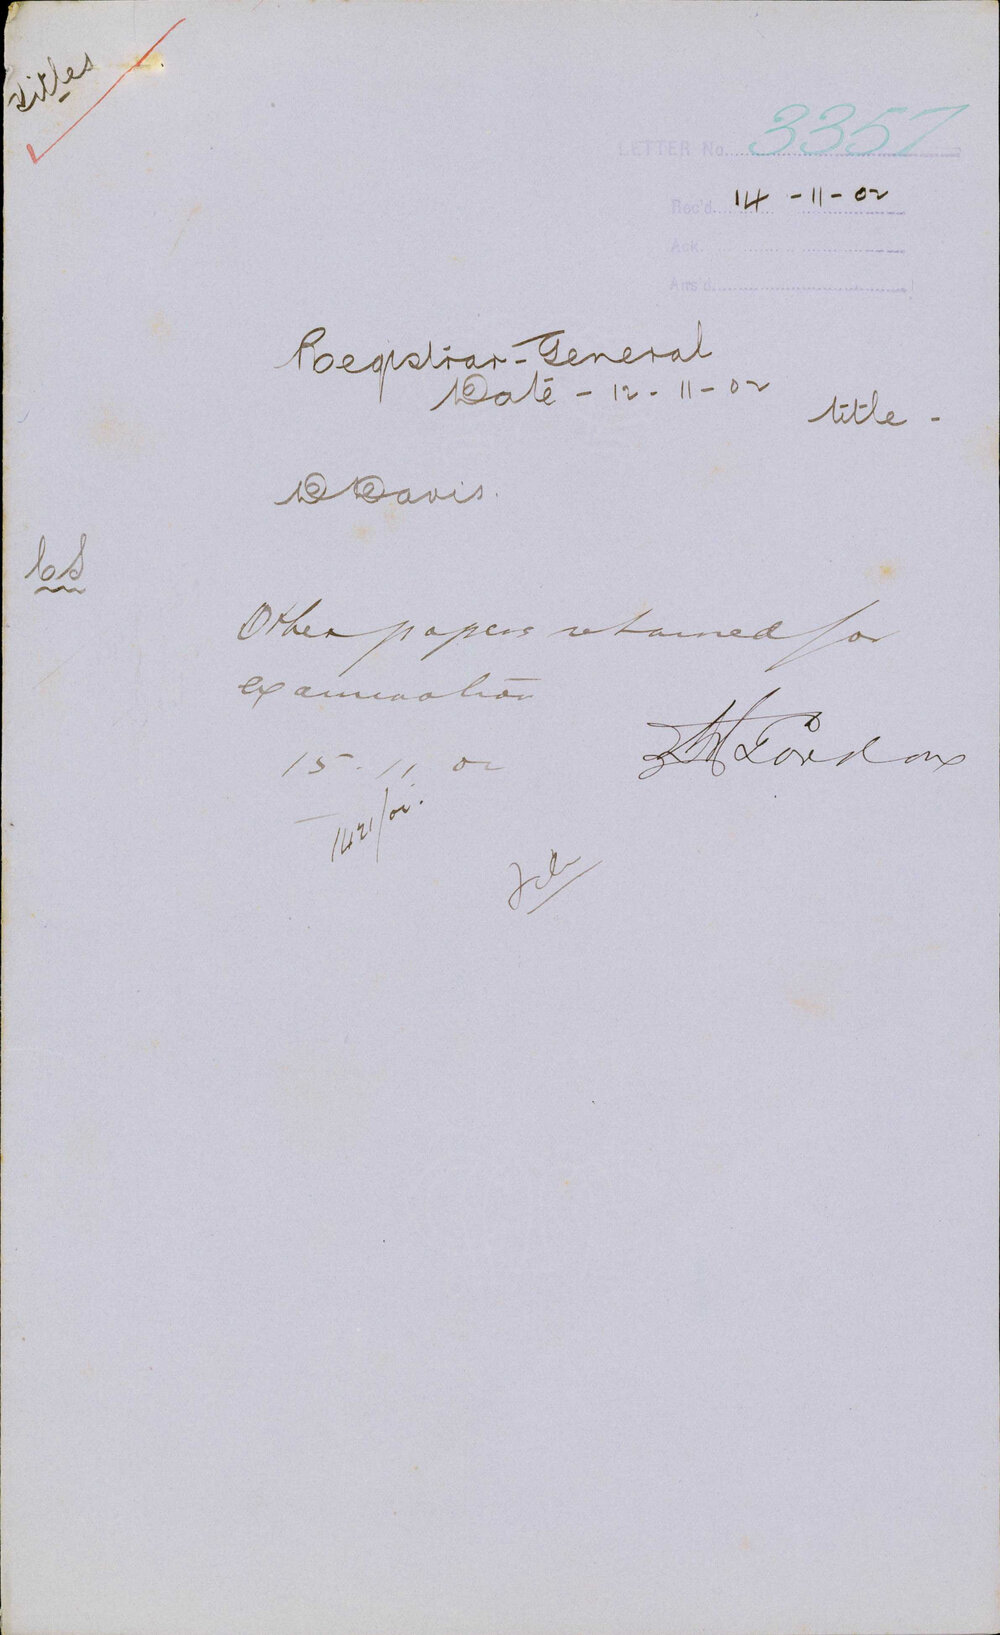 Titles
LETTER No. 3357
Rec'd. 14-11-02
Ack.
Ans'd.
Registrar-General
Date - 12-11-02
title -
D Davis.
CS
Other papers retained for
examination
15.11.02
Gordon
1421/02.